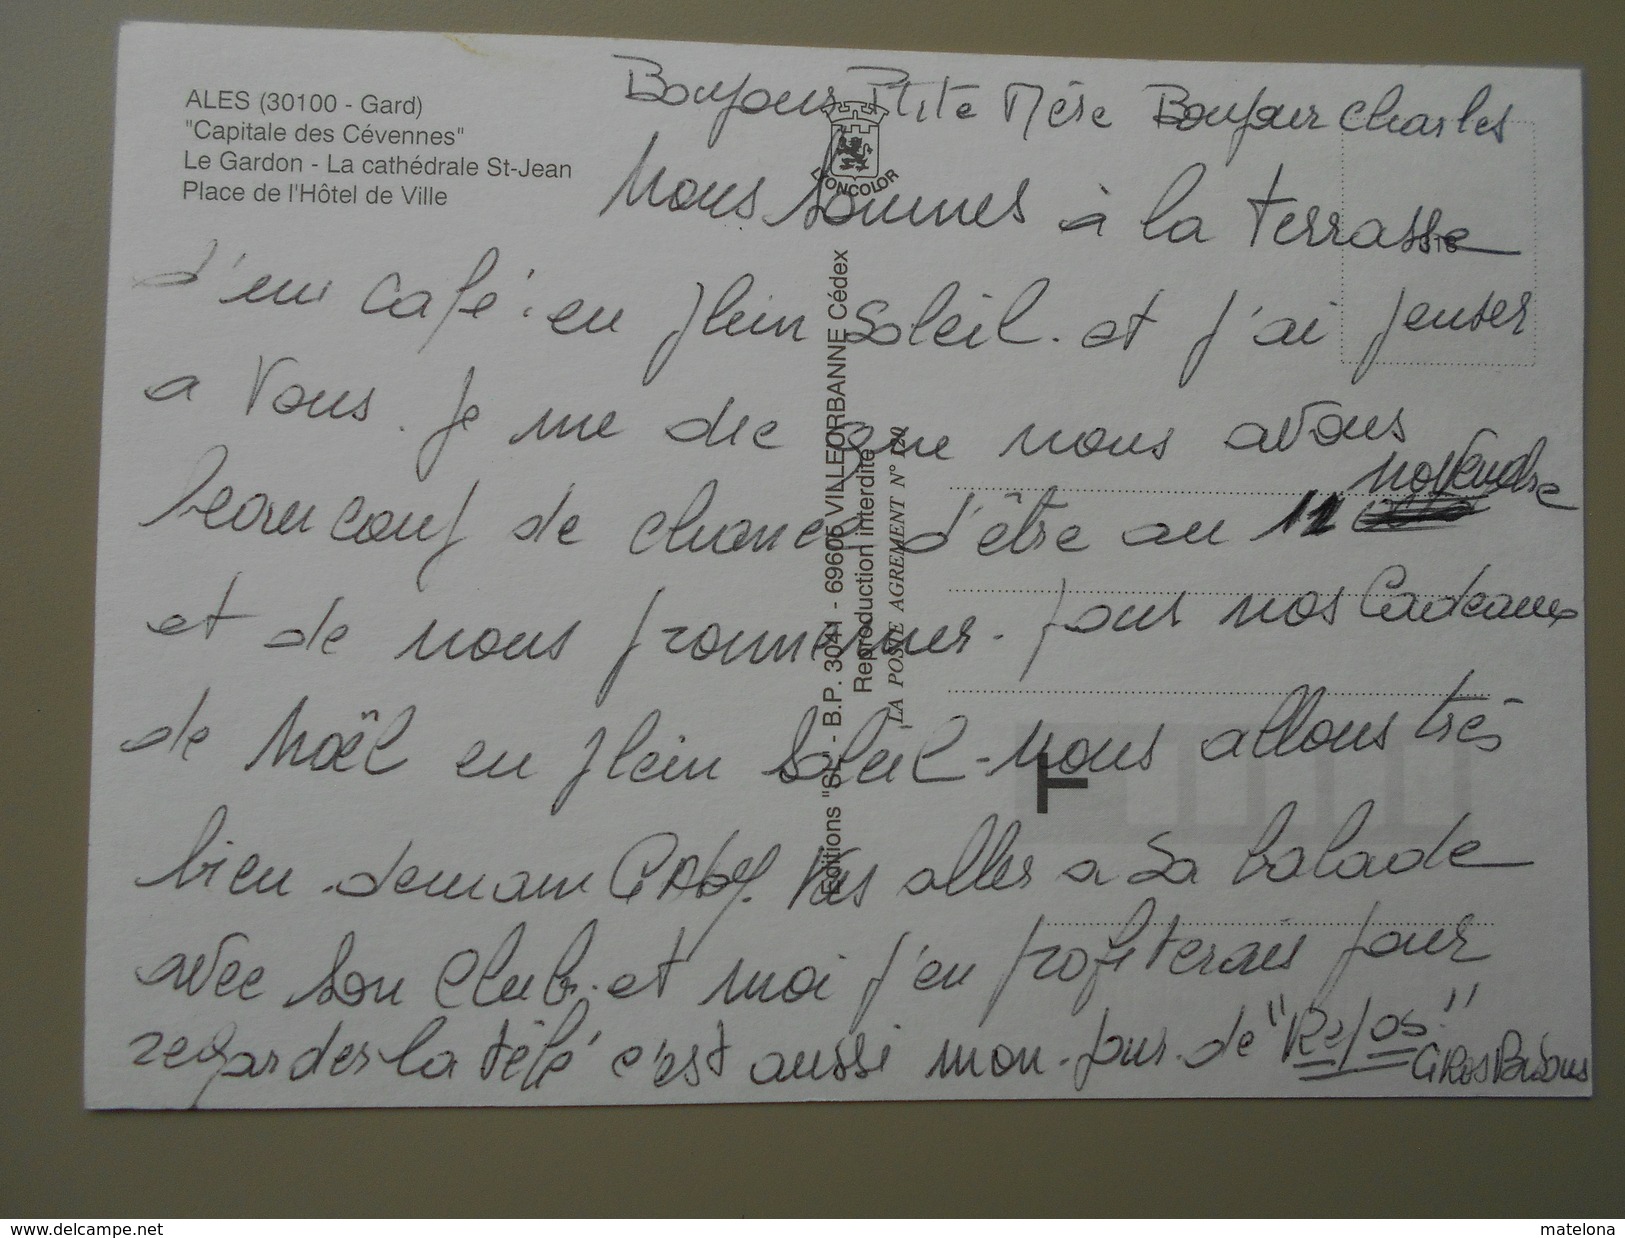 ALES (30100 - Gard)
"Capitale des Cévennes"
Le Gardon - La cathédrale St-Jean
Place de l'Hôtel de Ville
Bonjour Ptite Mère Bonjour Charles
Nous sommes à la terrasse
d'un café. en plein soleil. et j'ai penser
a vous. je me dee que nous avons
beaucoup de chance d'être au 11 novembre
et de nous prommener. pour nos Cadeaux
de Noël en plein soleil - Nous allons très
bien. demain GAby. Vas aller a sa balade
avec son Club. et moi j'en profiterais pour
regarder la télé c'est aussi mon jour de "Repos."
GROS Bisous
Editions "SL" - B.P. 3041 - 69605 VILLEURBANNE Cédex
Reproduction interdite
LA POSTE AGREMENT N° 120
T
www.delcampe.net
matelona